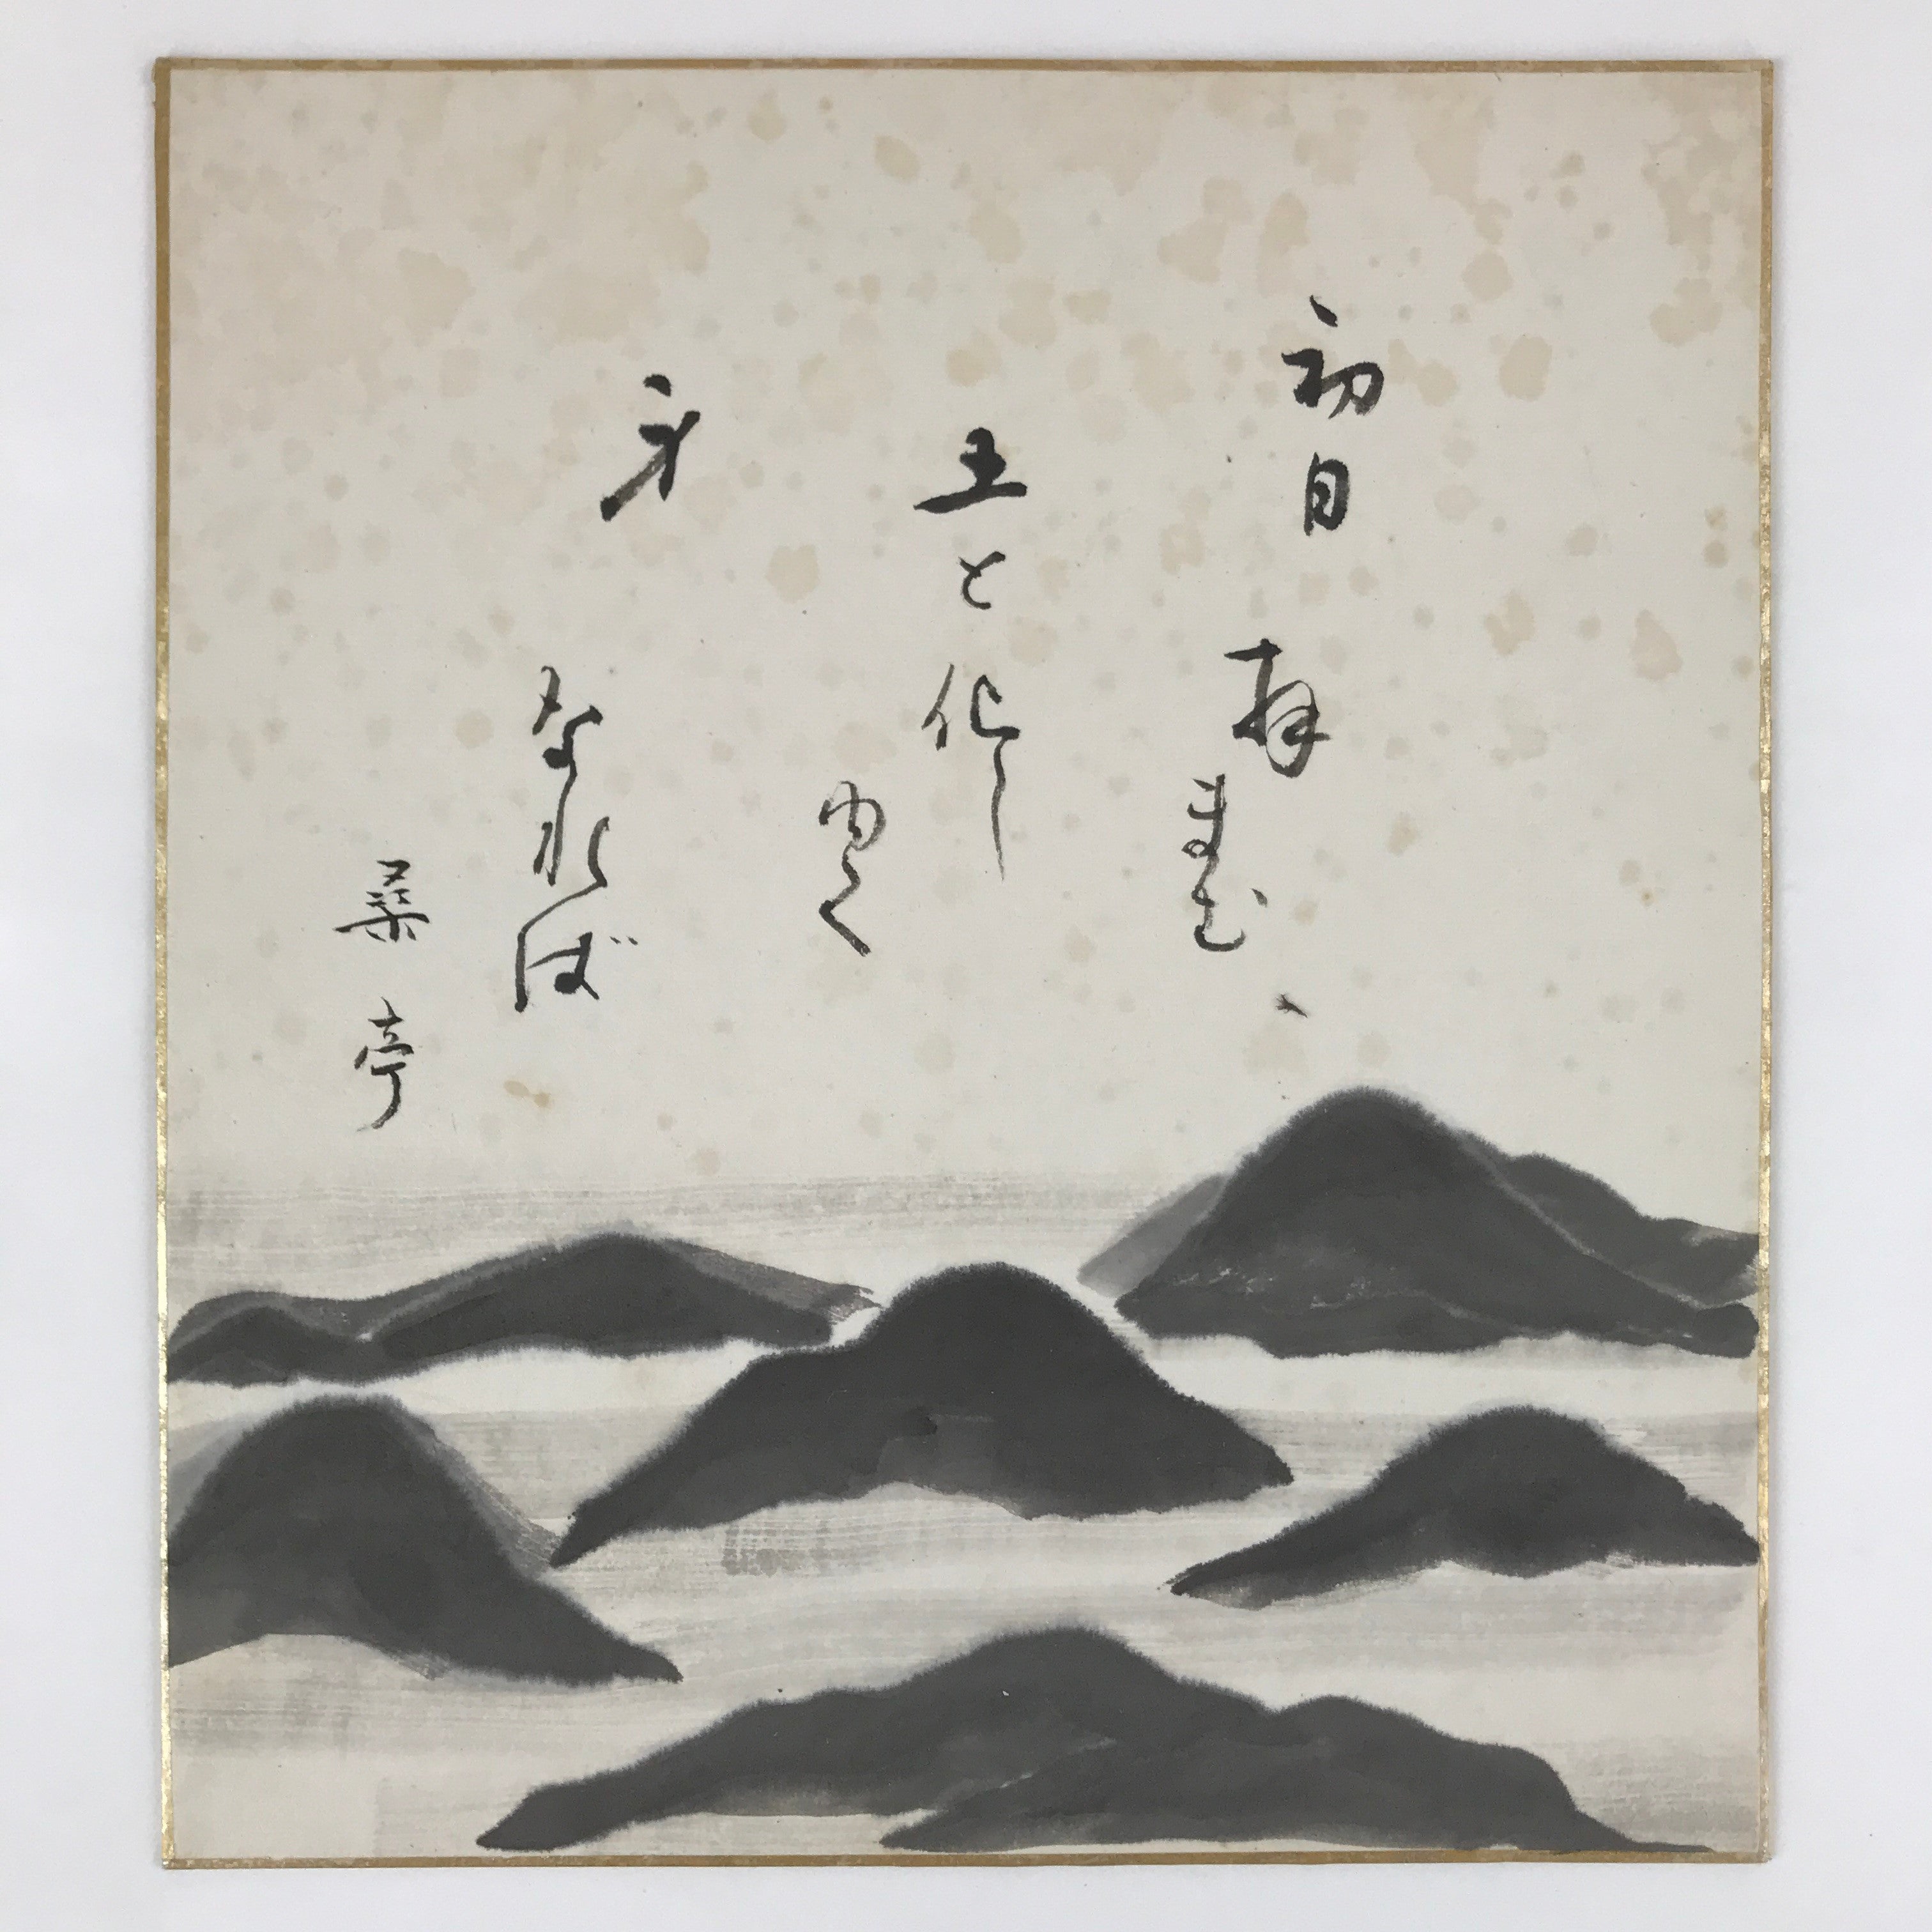 初日拝まむ
土と化し
ゆく
身
なれば
桑亭